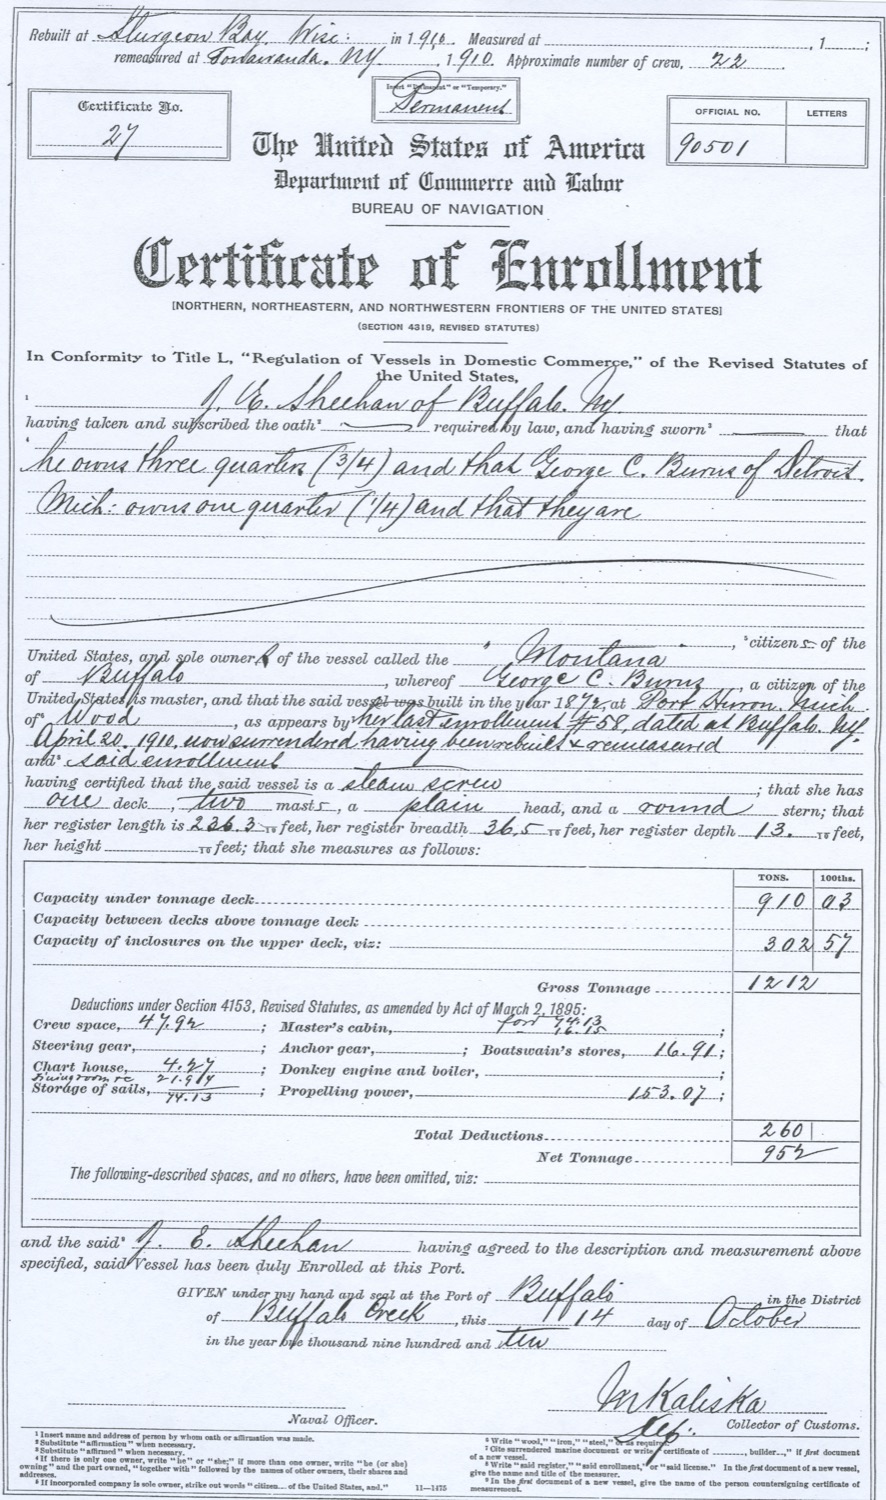 Rebuilt at Sturgeon Bay, Wisc: in 1910. Measured at , 1 ;
remeasured at Tonawanda. NY , 1910. Approximate number of crew, 22
Insert "Permanent" or "Temporary."
Permanent
Certificate No.
27
OFFICIAL NO. LETTERS
90501
The United States of America
Department of Commerce and Labor
BUREAU OF NAVIGATION
Certificate of Enrollment
[NORTHERN, NORTHEASTERN, AND NORTHWESTERN FRONTIERS OF THE UNITED STATES]
(SECTION 4319, REVISED STATUTES)
In Conformity to Title L, "Regulation of Vessels in Domestic Commerce," of the Revised Statutes of
the United States,
1 J. E. Sheehan of Buffalo. NY
having taken and subscribed the oath2 required by law, and having sworn3 that
4 he owns three quarters (3/4) and that George C. Burns of Detroit.
Mich: owns one quarter (1/4) and that they are
, 5 citizens of the
United States, and sole owners of the vessel called the " Montana "
of Buffalo , whereof George C. Burns , a citizen of the
United States is master, and that the said vessel was built in the year 1872, at Port Huron. Mich
of6 Wood , as appears by7 her last enrollment #58, dated at Buffalo. NY.
April 20. 1910, now surrendered having been rebuilt & remeasured
and8 said enrollment
having certified that the said vessel is a steam screw ; that she has
one deck , two masts , a plain head, and a round stern; that
her register length is 236.3 10 feet, her register breadth 36.5 10 feet, her register depth 13. 10 feet,
her height 10 feet; that she measures as follows:
TONS. 100ths.
Capacity under tonnage deck 910 03
Capacity between decks above tonnage deck
Capacity of inclosures on the upper deck, viz: 302 57
Gross Tonnage 1212
Deductions under Section 4153, Revised Statutes, as amended by Act of March 2, 1895:
Crew space, 47.92 ; Master's cabin, 94.13 ;
Steering gear, ; Anchor gear, ; Boatswain's stores, 16.91 ;
Chart house, 4.27 ; Donkey engine and boiler, ;
Storage of sails, 94.13 ; Propelling power, 153.07 ;
Total Deductions 260
Net Tonnage 952
The following-described spaces, and no others, have been omitted, viz:
and the said J. E. Sheehan having agreed to the description and measurement above
specified, said Vessel has been duly Enrolled at this Port.
GIVEN under my hand and seal at the Port of Buffalo in the District
of Buffalo Creek , this 14 day of October
in the year one thousand nine hundred and ten
M Kaliska
Dep.
Naval Officer. Collector of Customs.
1 Insert name and address of person by whom oath or affirmation was made.
2 Substitute "affirmation" when necessary.
3 Substitute "affirmed" when necessary.
4 If there is only one owner, write "he" or "she;" if more than one owner, write "he (or she)
owning" and the part owned, "together with" followed by the names of other owners, their shares and
addresses.
5 If incorporated company is sole owner, strike out words "citizen... of the United States, and." 11—1475
6 Write "wood," "iron," "steel," or as required.
7 Cite surrendered marine document or write "certificate of ........, builder..," if first document
of a new vessel.
8 Write "said register," "said enrollment," or "said license." In the first document of a new vessel,
give the name and title of the measurer.
9 In the first document of a new vessel, give the name of the person countersigning certificate of
measurement.